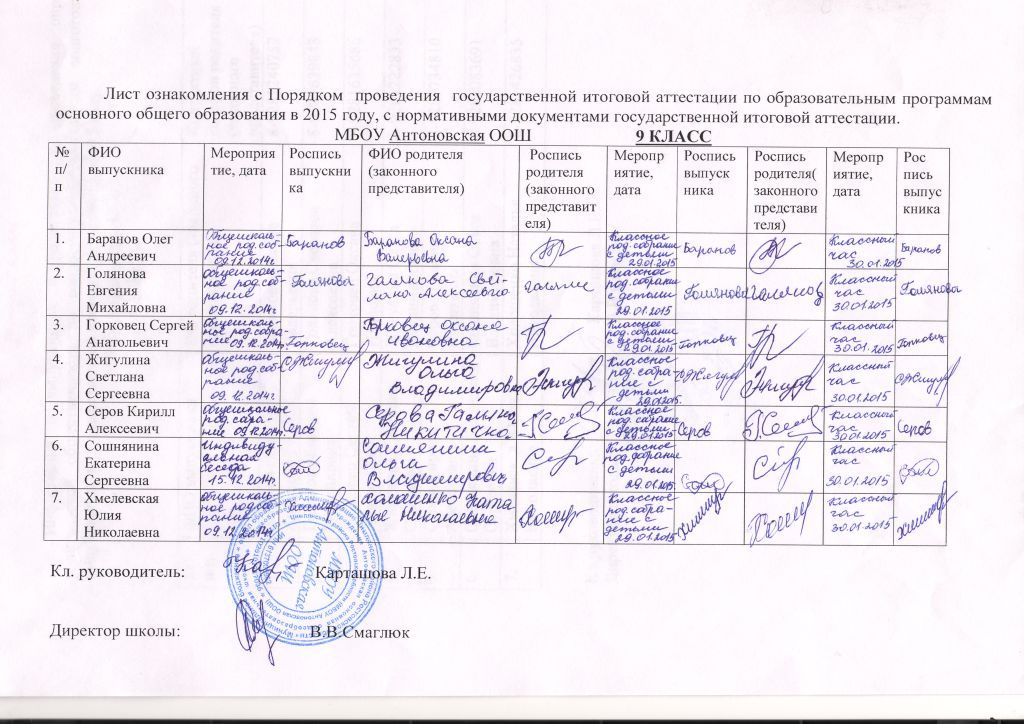 Лист ознакомления с Порядком проведения государственной итоговой аттестации по образовательным программам
основного общего образования в 2015 году, с нормативными документами государственной итоговой аттестации.
МБОУ Антоновская ООШ 9 КЛАСС
№ п/п | ФИО выпускника | Мероприятие, дата | Роспись выпускника | ФИО родителя (законного представителя) | Роспись родителя (законного представителя) | Мероприятие, дата | Роспись выпускника | Роспись родителя( законного представителя) | Мероприятие, дата | Роспись выпускника
1. | Баранов Олег Андреевич | Общешкольное род.собрание 09.12.2014г | Баранов | Баранова Оксана Валерьевна | Классное род.собрание с детьми 29.01.2015 | Баранов | Классный час 30.01.2015 | Баранов
2. | Голянова Евгения Михайловна | общешкольное род.собрание 09.12.2014г | Голянова | Голянова Светлана Алексеевна | Классное род.собрание с детьми 29.01.2015 | Голянова | Классный час 30.01.2015 | Голянова
3. | Горковец Сергей Анатольевич | общешкольное род.собрание 09.12.2014г | Горковец | Горковец Оксана Ивановна | Классное род.собрание с детьми 29.01.2015 | Горковец | Классный час 30.01.2015 | Горковец
4. | Жигулина Светлана Сергеевна | общешкольное род.собрание 09.12.2014г | Жигулина Ольга Владимировна | Классное род.собрание с детьми 29.01.2015 | Классный час 30.01.2015
5. | Серов Кирилл Алексеевич | Общешкольное род.собрание 09.12.2014г. | Серов | Серова Галина Никитична | Классное род.собрание с детьми 29.01.2015 | Серов | Классный час 30.01.2015 | Серов
6. | Сошнянина Екатерина Сергеевна | Индивидуальная беседа 15.12.2014г. | Ольга Владимировна | Классное род.собрание с детьми 29.01.2015 | Классный час 30.01.2015
7. | Хмелевская Юлия Николаевна | общешкольное род.собрание 09.12.2014г | Николаевна | Классное род.собрание с детьми 29.01.2015 | Классный час 30.01.2015
Кл. руководитель: Карташова Л.Е.
Директор школы: В.В.Смаглюк
МБОУ Антоновская ООШ